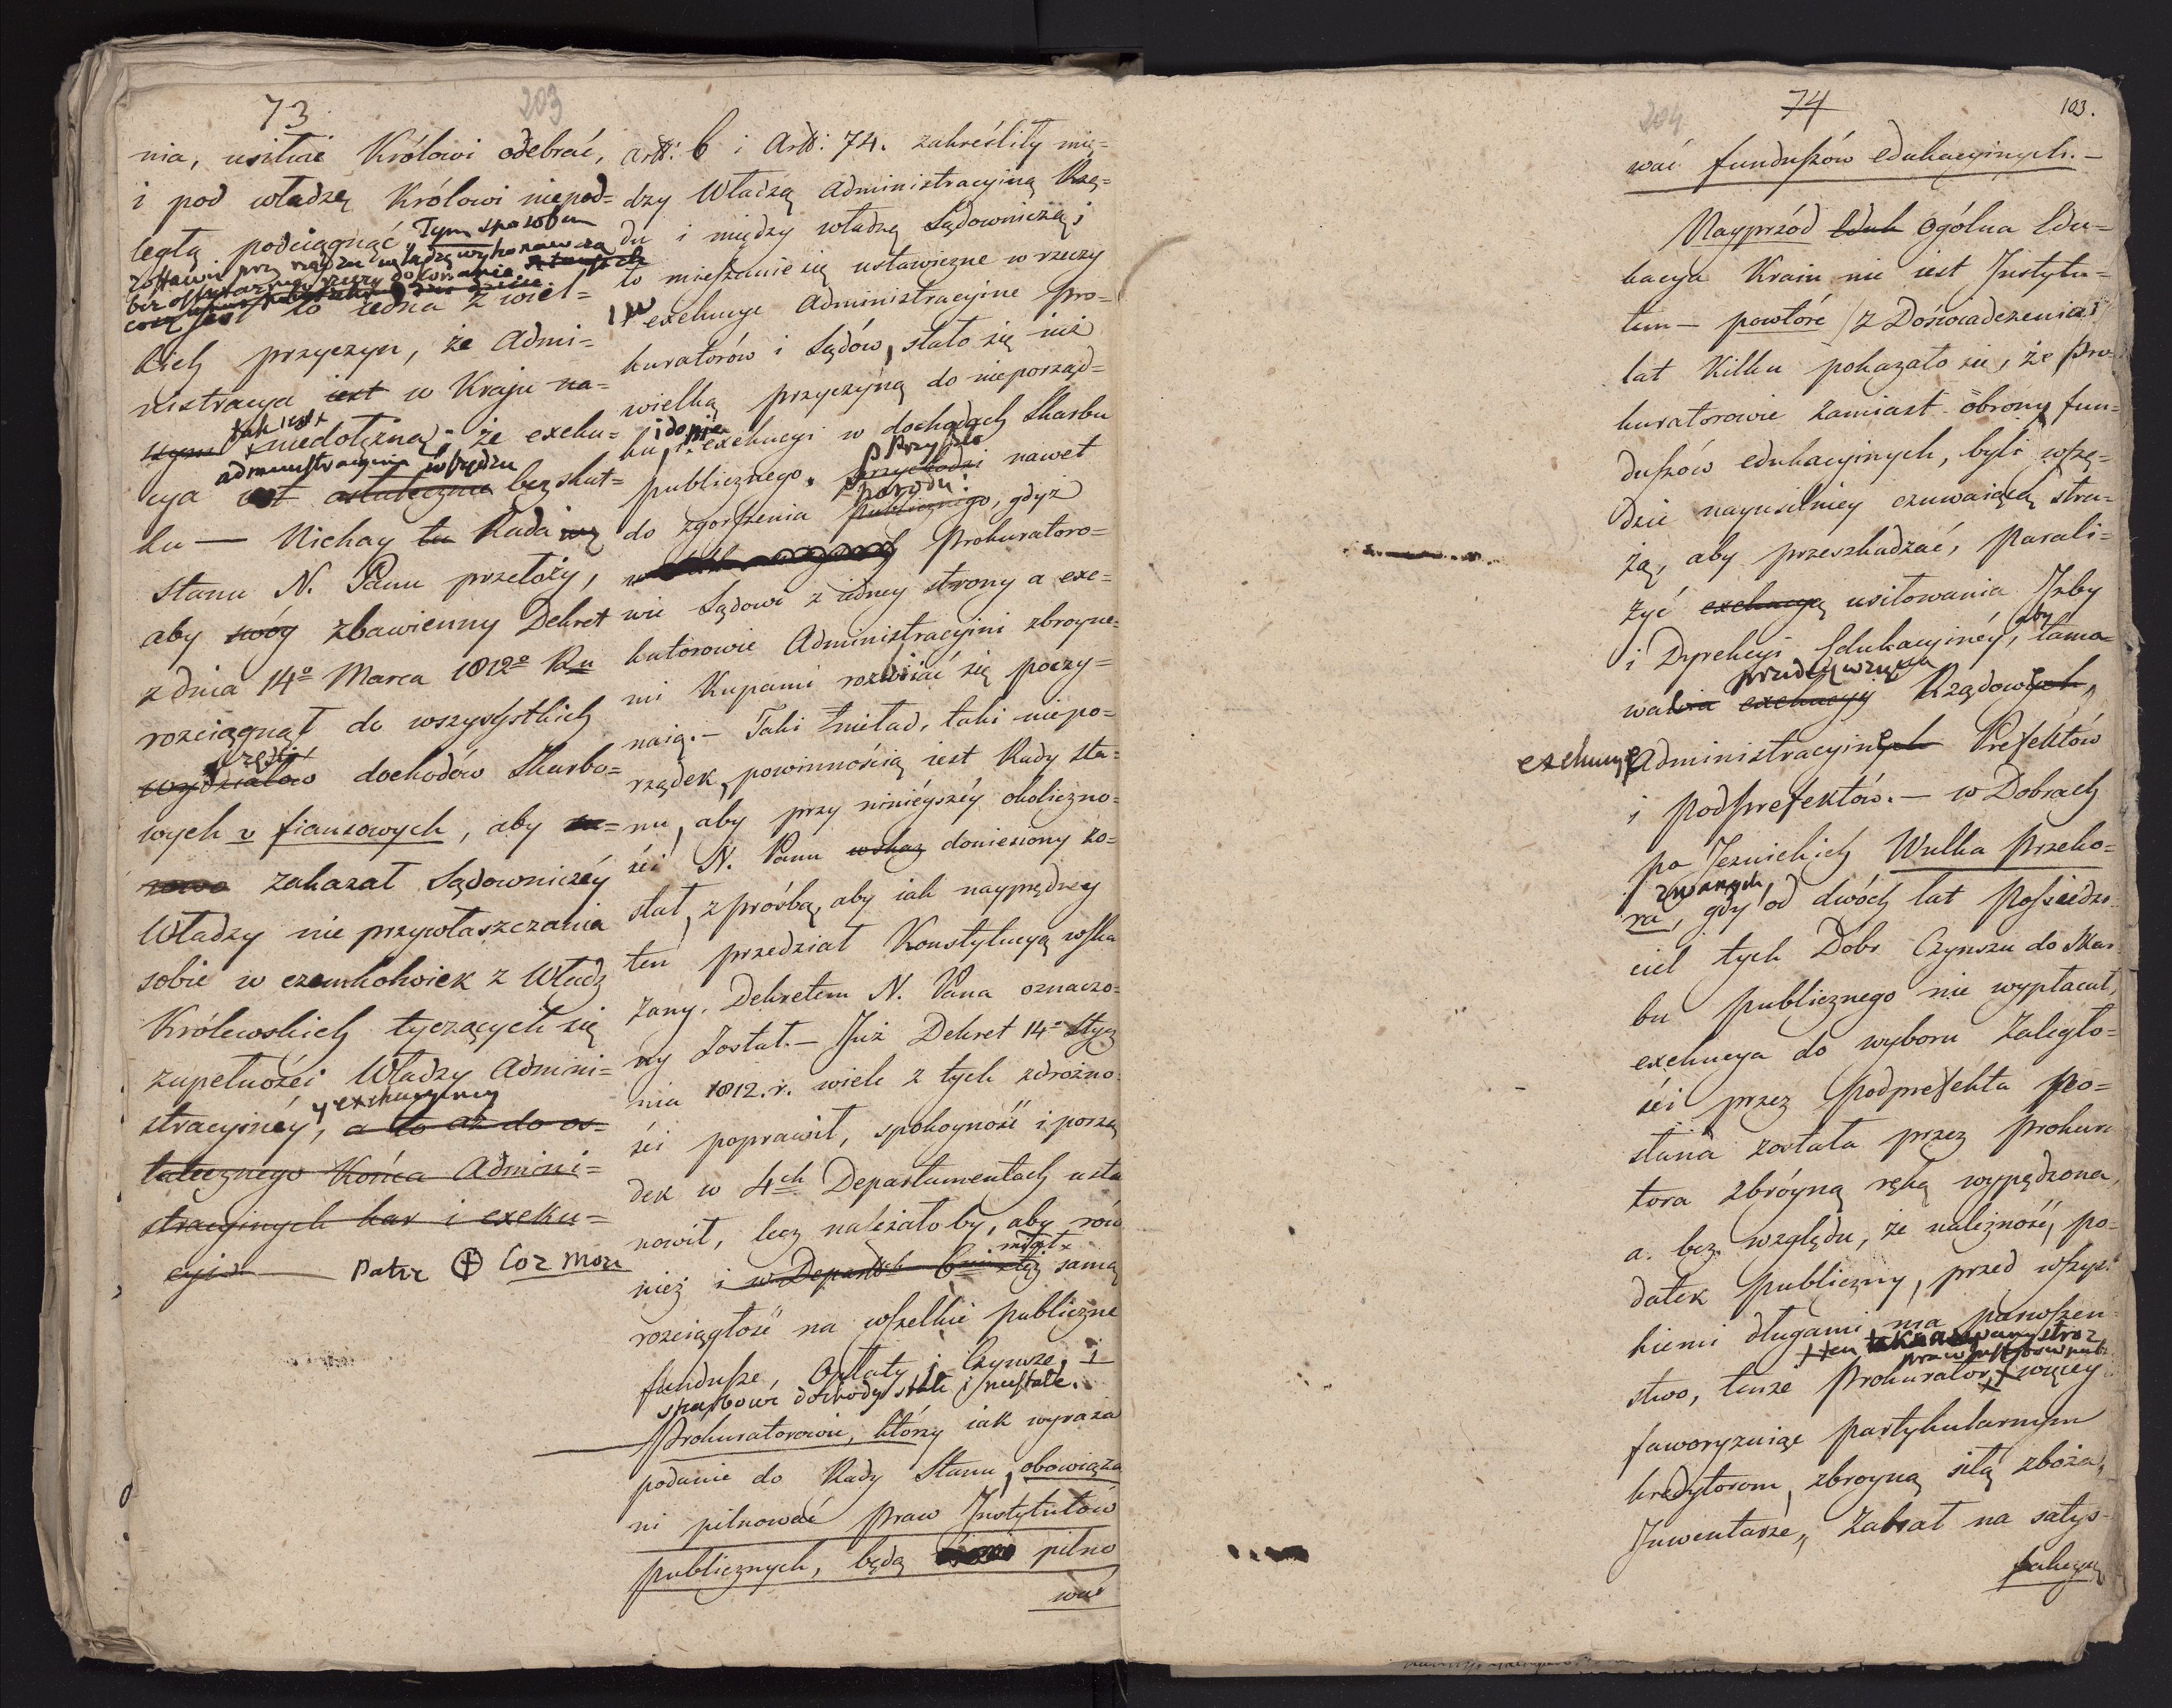 73
203
nia, usiłuie Królowi odebrać,
i pod władzę Królowi niepod=
ległą podciągnąć. Tym sposobem
zostawia przy rządzie władzę wykonawczą
bez
to iedna z wiel=
kich przyczyn, że Admi=
nistracya iest w Kraju na=
szym tak iest niedołężną; że exeku=
administracyina wszędzie
cya iest ostateczna bez skut=
ku — Niechay ta Rada
Stanu N. Panu przełoży,
aby swóy zbawienny Dekret
z dnia 14o Marca 1812o Ru
rozciągnął do wszystkich
wydziałów dochodów Skarbo=
wych v fiansowych, aby
zakazał Sądowniczéy
Władzy nie przywłaszczania
sobie w czemkolwiek z Władz
Królewskich tyczących się
zupełności Władzy Admini=
stracyinéy, y exekucyiney a to aż do os=
tatecznego Końca Admini=
stracyinych kar i exeku=
cyi. — Patrz ⊕ Coz Moze
artt: 6 i Artt: 74. zakreśliły mię=
dzy Władzą Administracyiną Rzą=
du i między władzą Sądowniczą;
to mieszanie się ustawiczne w rzeczy
i w exekucye Administracyine Pro=
kuratorów i Sądów, stało się iuż
wielką przyczyną do nieporząd=
ku, i do nie exekucyi w dochodach Skarbu
publicznego. przychodzi przyszło nawet
do zgorszenia publicznego, narodu! gdyż
Prokuratoro=
wie Sądowi z iedney strony a exe=
kutorowie Administracyini zbroyne=
mi Kupami rozbiiać się poczy=
naią. — Taki nieład, taki niepo=
rządek, powinnością iest Rady Sta=
nu, aby przy niniéyszéy okoliczno=
ści N. Panu doniesiony zo=
stał, z prośbą, aby iak nayprędzey
ten przedział Konstytucyą wska
zany, Dekretem N. Pana oznaczo=
ny został. — Już Dekret 14o Stycz
nia 1812. r. wiele z tych zdrożno=
ści poprawił, spokoyność i porzą
dek w 4ch Departamentach usta
nowił, lecz należałoby, aby rów
nież i w Departch miał samą
rozciągłość na wszelkie publiczne
fundusze, Opłaty i Czynsze, i
skarbowe dochody stałe i niestałe.
Prokuratorowie, którzy iak wyraża
podanie do Rady Stanu, obowiąza
ni pilnować Praw Instytutów
publicznych, będą pilno
wać
204
74
103.
wać funduszów edukacyinych. —
Nayprzód Eduk Ogólna Edu=
kacya Kraiu nie iest Instytu=
tem — powtóre /z Doświadczenia/
lat Kilku pokazało się, że Pro=
kuratorowie zamiast obrony fun=
duszów edukacyinych, byli wszę=
dzie nayusilniey czuwaiącą stra=
żą, aby przeszkadzać, Parali=
żyć exekucyą usiłowania Izby
i Dyrekcyi Edukacyinéy, aby tamo=
wać exekucyi przedsięwzięcia Rządowych,
exekucye Administracyinych Prefektów
i Podprefektów. — w Dobrach
po Jezuickich Wulka Przeko=
ra, zwanych, gdy od dwóch lat Possiedzi
ciel tych Dobr Czynszu do Skar
bu publicznego nie wypłacał,
exekucya do wyboru Zaległo=
ści przez Podprefekta Po=
słana została przez Prokura
tora zbróyną ręką wypędzona,
a. bez względu, że należność, po=
datek publiczny, przed wszyst
kiemi długami ma pierwszen=
stwo, tenże Prokurator, więcey
+ ten tak nazwany stróz
praw
faworyzuiąc partykularnym
kredytorom, zbroyną siłą zboża,
Inwentarze, zabrał na satys=
fakcyą